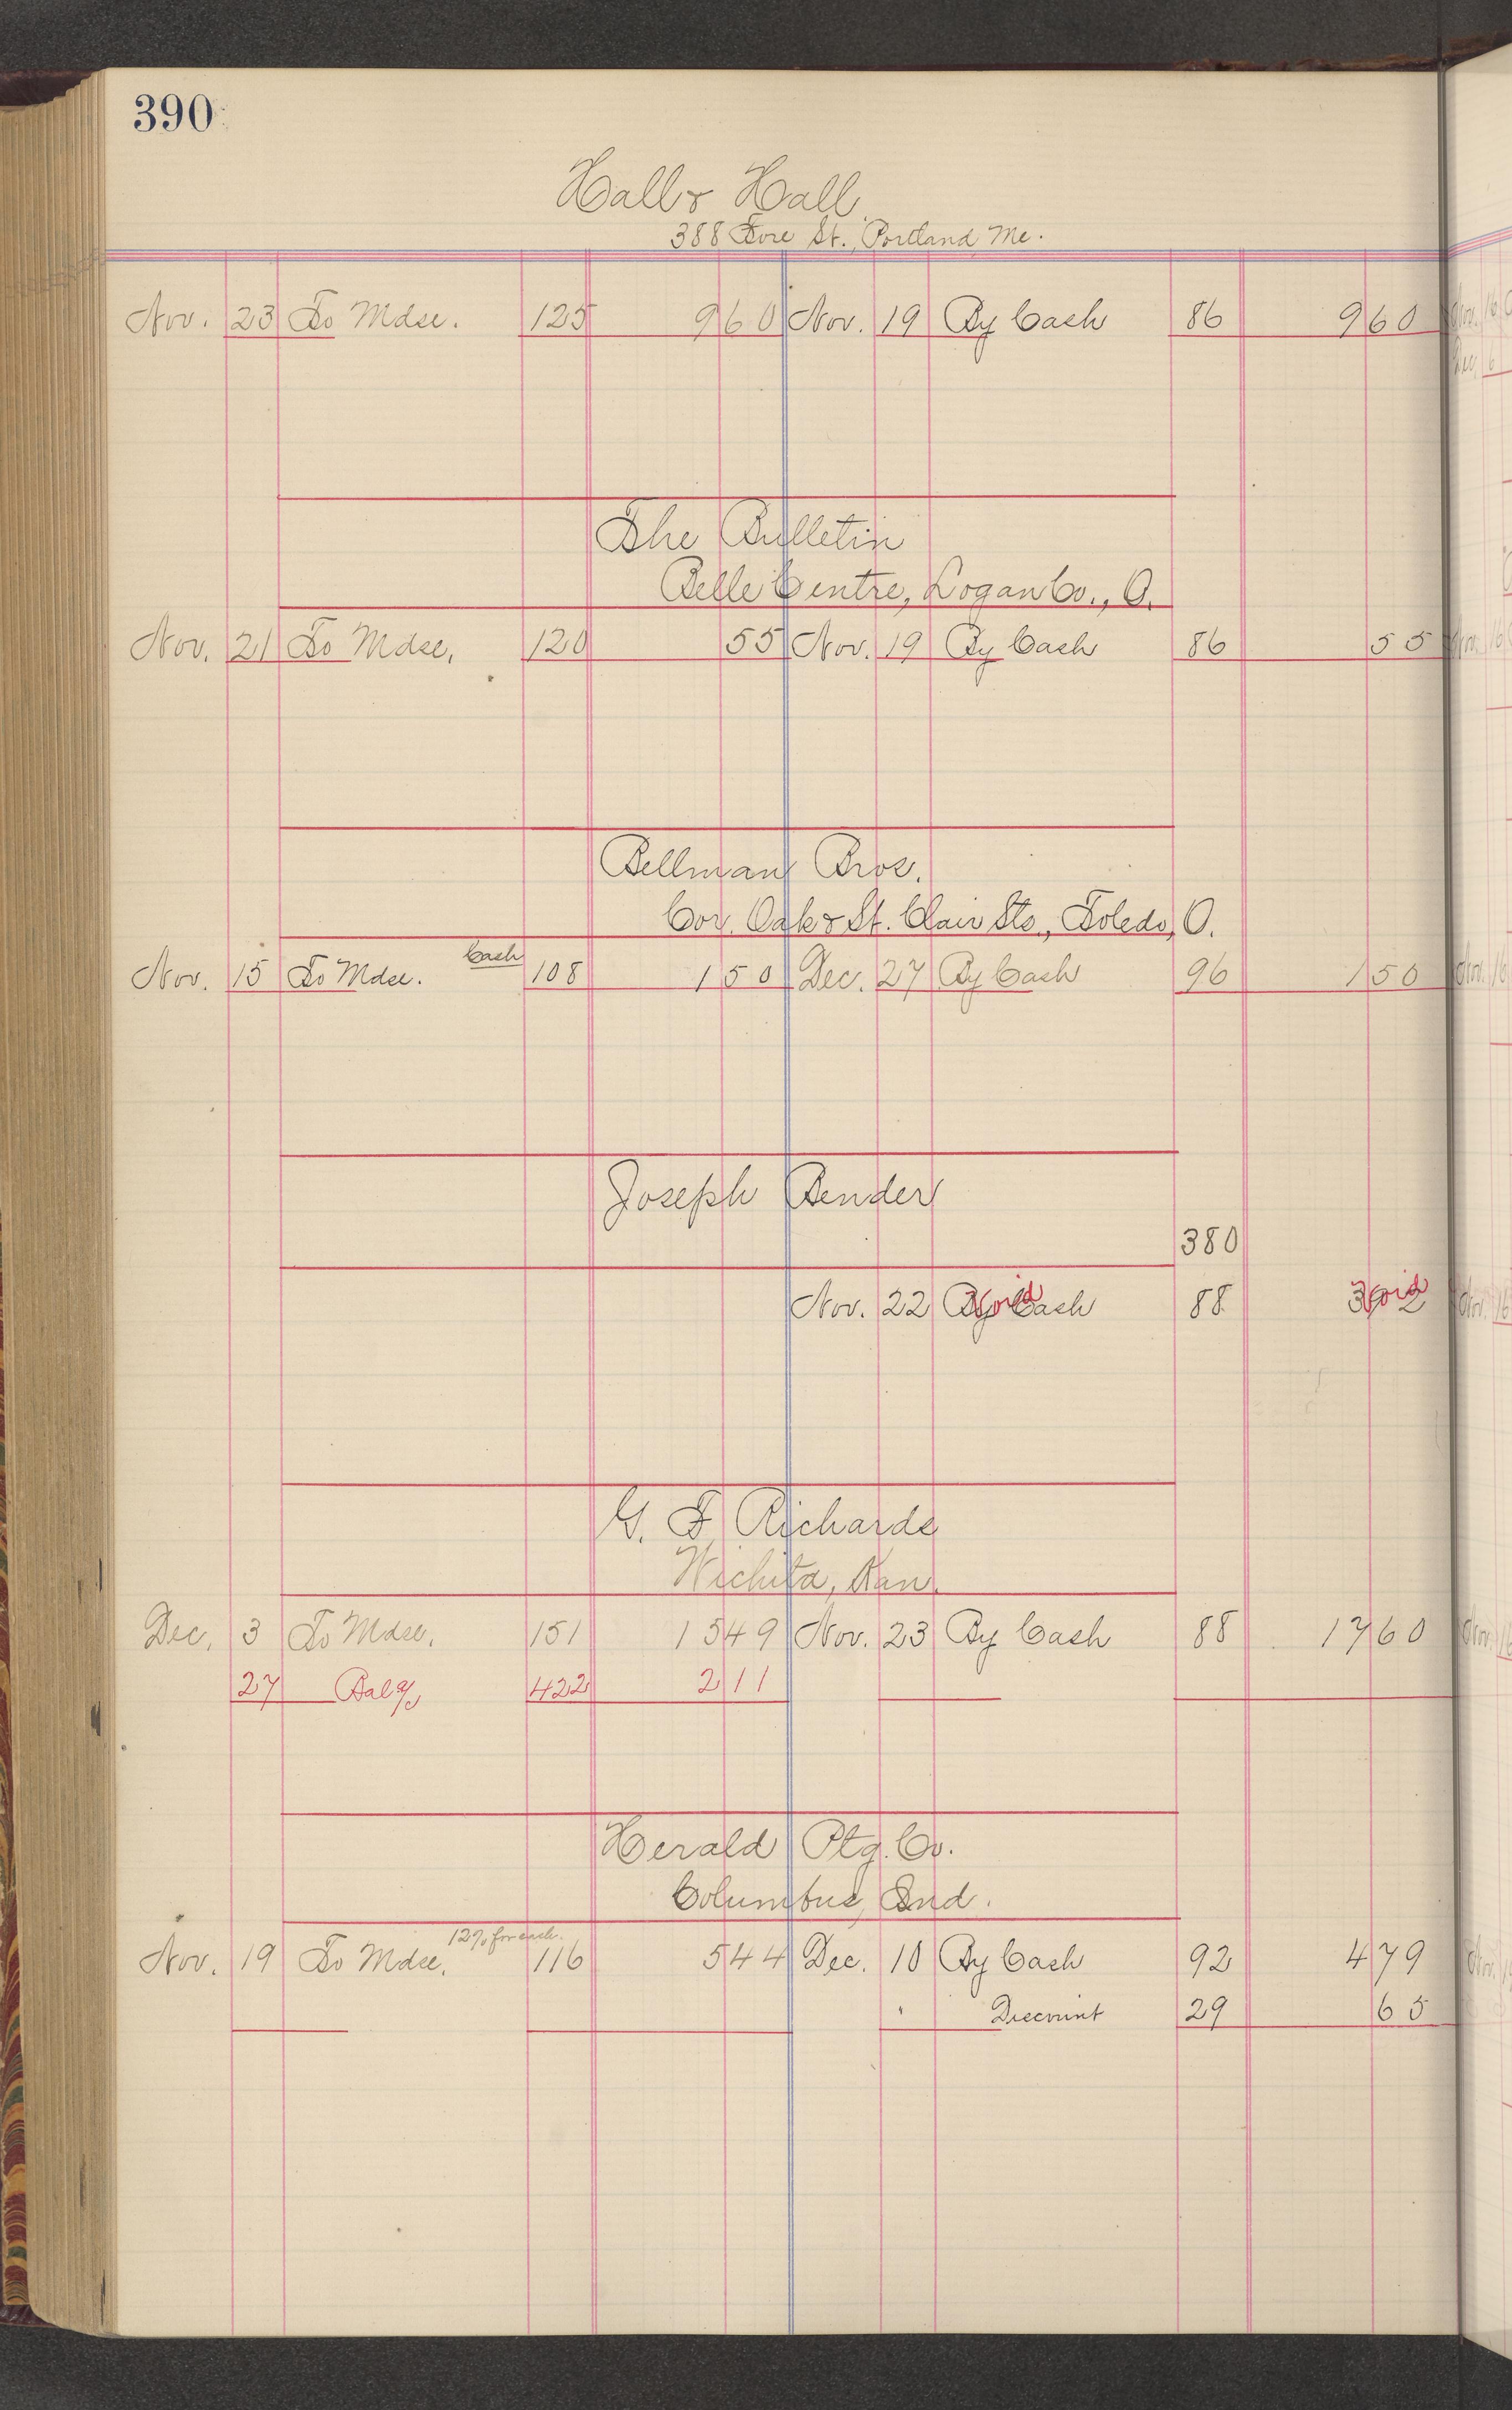 390
Hall & Hall
388 Fore St., Portland, Me.
Nov. 23 To Mdse. 125 9 60 Nov. 19 By Cash 86 9 60
The Bulletin
Belle Centre, Logan Co., O.
Nov. 21 To Mdse. 120 55 Nov. 19 By Cash 86 55
Bellman Bros.
Cor. Oak & St. Clair Sts., Toledo, O.
Cash
Nov. 15 To Mdse. 108 1 50 Dec. 27 By Cash 96 1 50
Joseph Bender
380
Nov. 22 By Cash Void 88 Void
G. F. Richards
Wichita, Kan.
Dec. 3 To Mdse. 151 15 49 Nov. 23 By Cash 88 17 60
27 Bal a/c 422 2 11
Herald Ptg. Co.
Columbus, Ind.
12% for cash.
Nov. 19 To Mdse. 116 5 44 Dec. 10 By Cash 92 4 79
" Discount 29 65